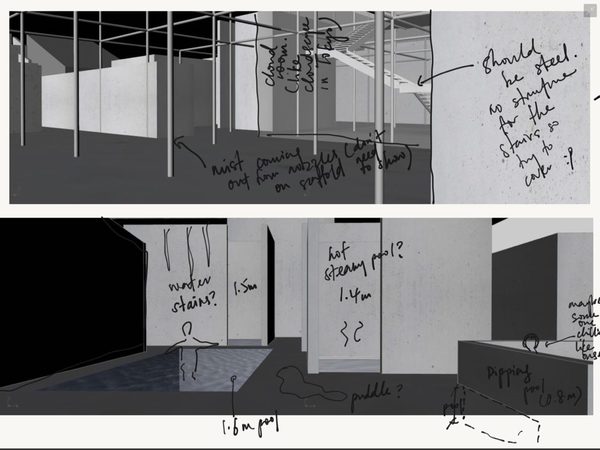 cloud
room.
(like
cloudscape
in tokyo)
should
be steel.
no structure
for the
stairs so
try to
cover :p
mist coming
out from nozzles (don't
on scaffold need
to show)
water
stains?
1.5m
hot
steamy pool?
1.4m
maybe
some
one
chilling
like
dipping
pool
(0.8m)
puddle?
pool
1.6m pool